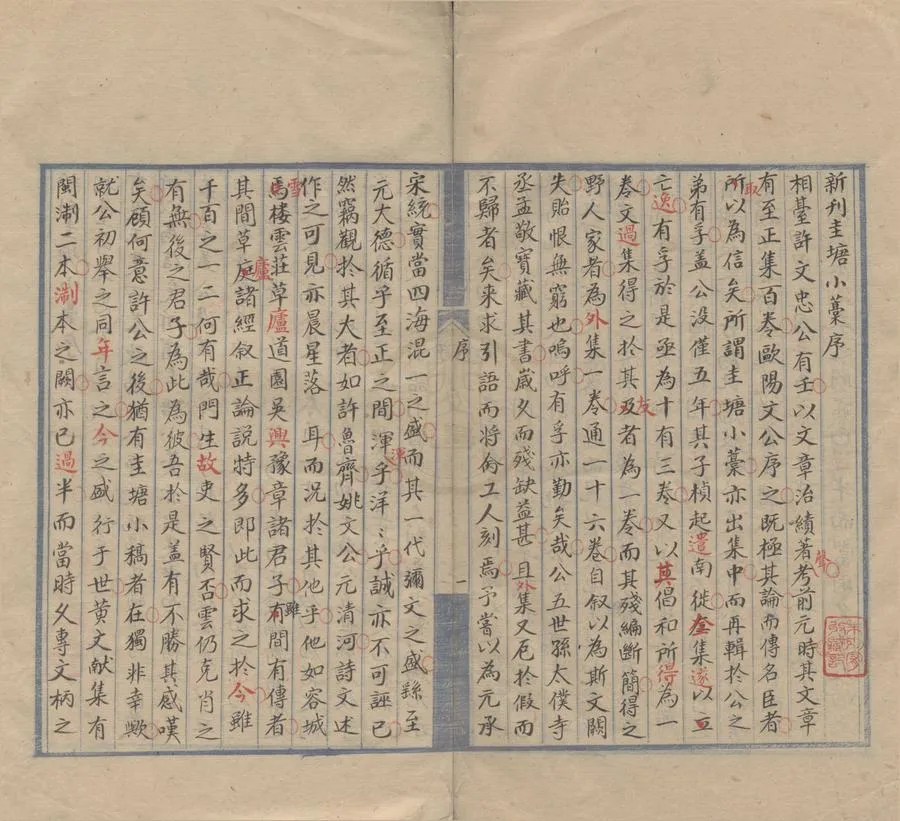 新刊圭塘小藁序
相臺許文忠公有壬以文章治績著聲考前元時其文章
有至正集百卷歐陽文公序之既極其論而傳名臣者
所取以為信矣所謂圭塘小藁亦出集中而再輯於公之
弟有孚蓋公沒僅五年其子楨起遣南徙全集遂以亙
亡逸有孚於是亟為十有三卷又以其倡和所得為一
卷文過集得之於其友者為一卷而其殘編斷簡得之
野人家者為外集一卷通一十六卷自叙以為斯文闕
失貽恨無窮也嗚呼有孚亦勤矣哉公五世孫太僕寺
丞孟敬寶藏其書歲久而殘缺益甚且外集又厄於假而
不歸者矣來求引語而將侖工人刻焉予嘗以為元承
序
一
宋統實當四海混一之盛而其一代彌文之盛繇至
元大德循乎至正之間渾渾乎洋〻乎誠亦不可誣已
然竊觀於其大者如許魯齊姚文公元清河詩文述
作之可見亦晨星落耳而況於其他乎他如容城
雪樓雲莊草廬道園吳興豫章諸君子雖間有傳者
其間草廬諸經叙正論說特多即此而求之於今雖
千百之一二何有哉門生故吏之賢否雲仍克肖之
有無後之君子為此為彼吾於是蓋有不勝其感嘆
矣顧何意許公之後猶有圭塘小稿者在獨非幸歟
就公初舉之同年言之今之盛行于世黃文獻集有
閩淛二本淛本之闕亦已過半而當時夂專文柄之